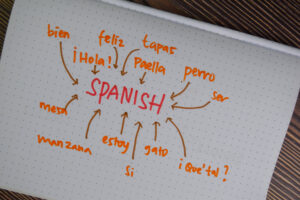 bien
feliz
tapas
¡Hola!
Paella
perro
ser
SPANISH
mesa
manzana
estoy
si
gato
¡Que'tal?